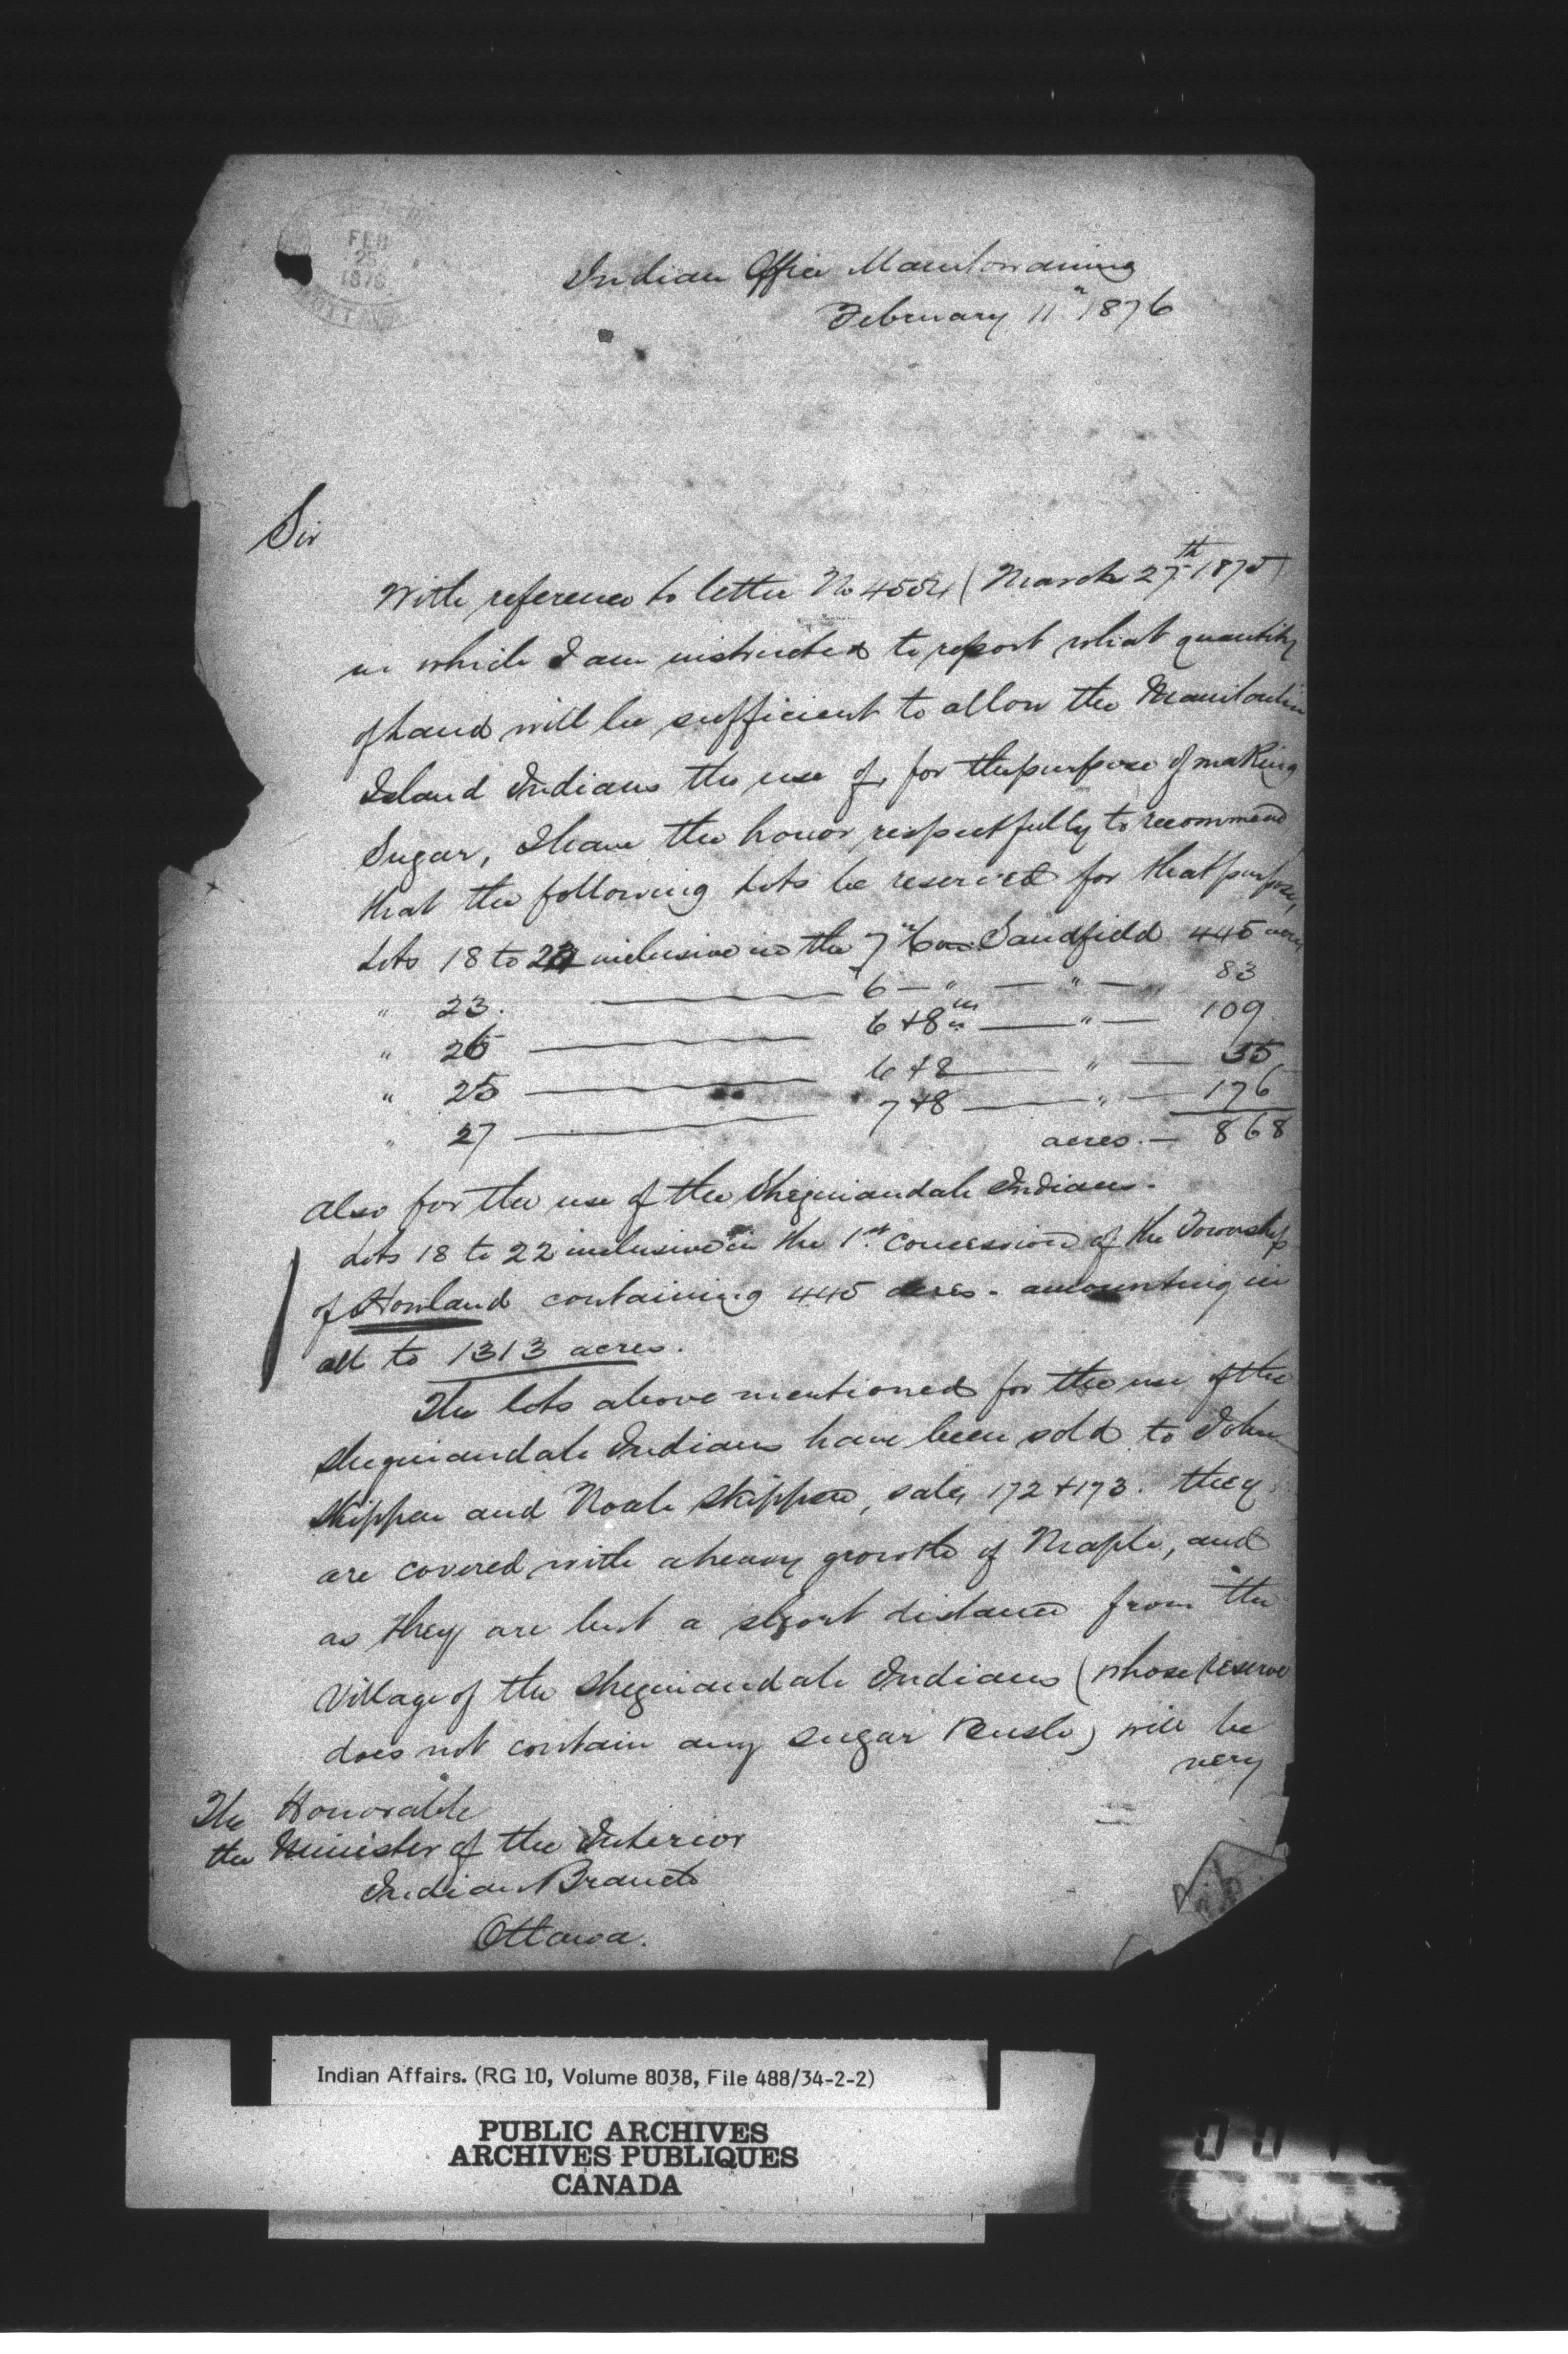 FEB
25
1876
OTTAWA
Indian Office Manitowaning
February 11th 1876
Sir
With reference to letter No 4554 (March 27th 1875)
in which I am instructed to report what quantity
of Land will be sufficient to allow the Manitoulin
Island Indians the use of, for the purpose of making
Sugar, I have the honor respectfully to recommend
that the following Lots be reserved for that purpose,
Lots 18 to 22 inclusive in the 7th Con Sandfield 445 acres
" 23. — 6 — " — " — 83
" 26 — 6 + 8th — " — 109
" 25 — 6 + 8 — " — 55
" 27 — 7 + 8 — " — 176
acres. — 868
also for the use of the Sheguiandah Indians.
Lots 18 to 22 inclusive in the 1st Concession of the Township
of Howland containing 445 acres. amounting in
all to 1313 acres.
The lots above mentioned for the use of the
Sheguiandah Indians have been sold to John
Skippen and Noah Skippen, sales 172 + 173. they
are covered with a heavy growth of Maple, and
as they are but a short distance from the
Village of the Sheguiandah Indians (whose reserve
does not contain any sugar Bush) will be
very
The Honorable
the Minister of the Interior
Indian Branch
Ottawa.
Indian Affairs. (RG 10, Volume 8038, File 488/34-2-2)
PUBLIC ARCHIVES
ARCHIVES PUBLIQUES
CANADA